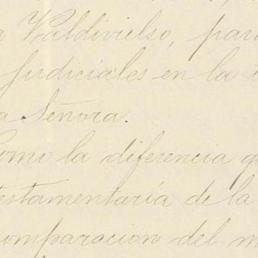 a Valdivielso, para
Judiciales en la
a Señora.
Como la diferencia q
testamentaría de la
comparacion del m